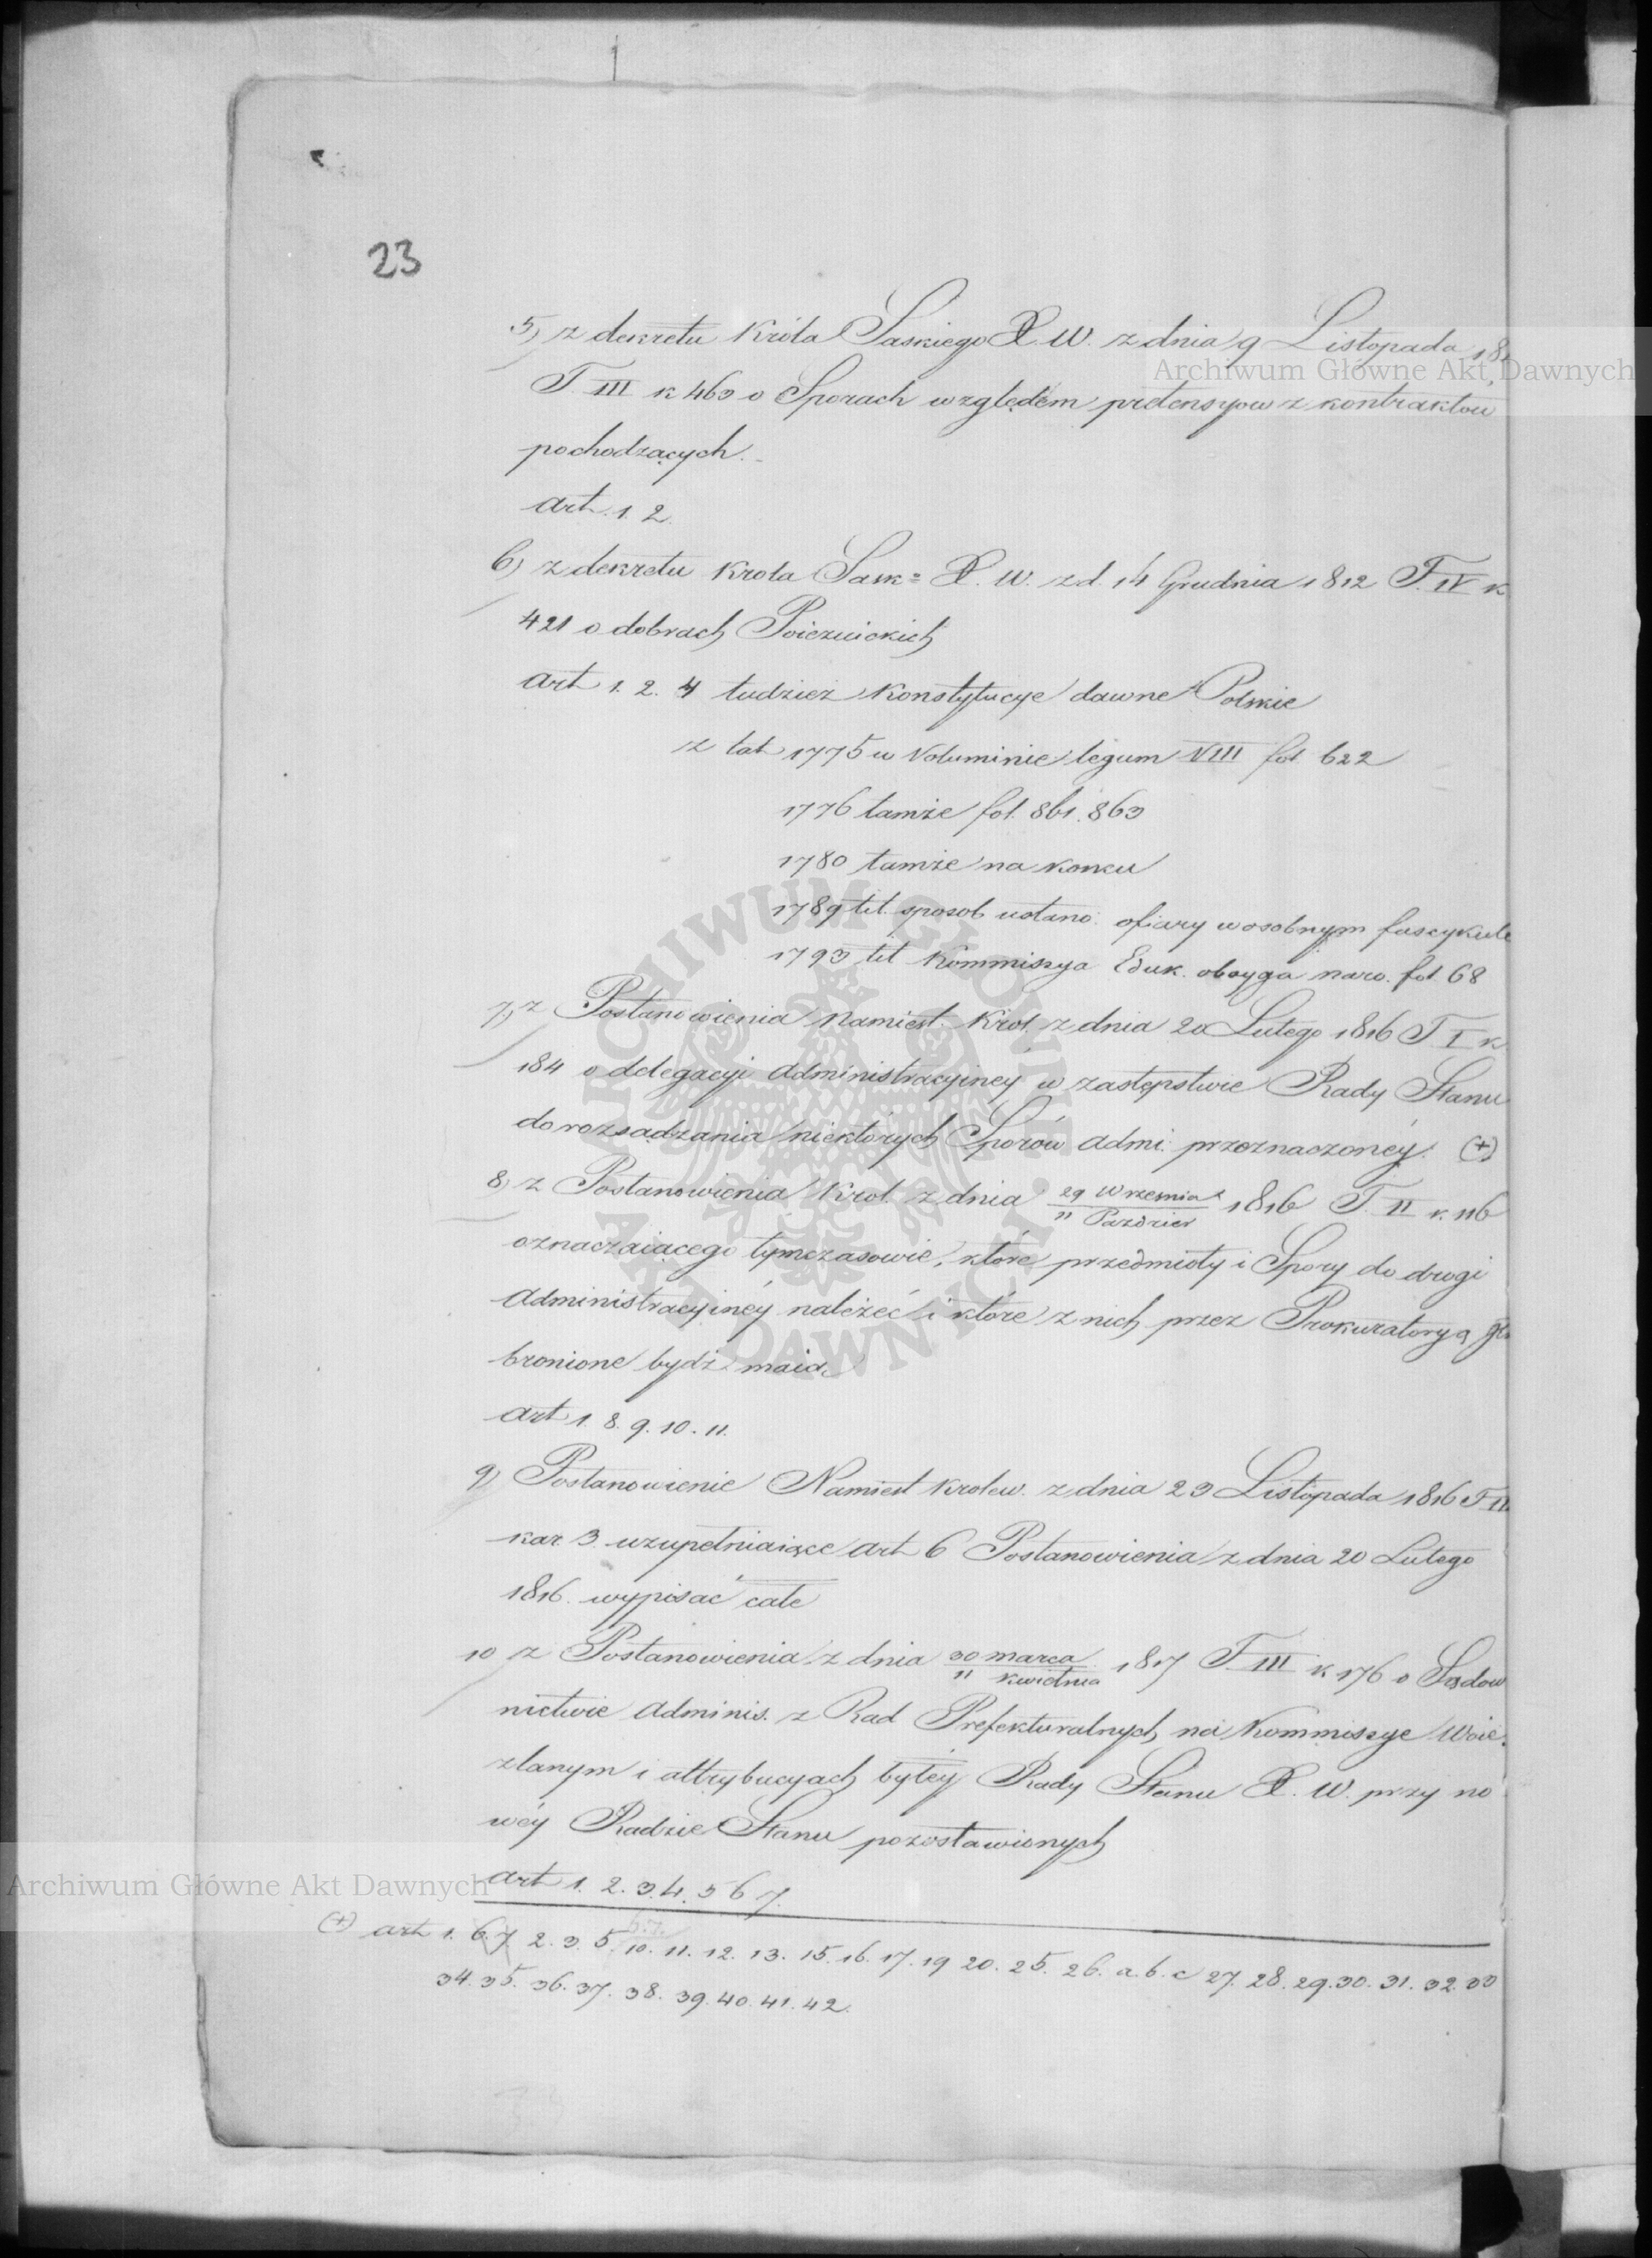 23
5) z dekretu Króla Saskiego X. W. z dnia 9 Listopada 18
T. III k 463 o Sporach względem pretensyow z kontraktów
pochodzących.
art. 1. 2.
6) z dekretu Krola Sask= X. W. z d. 14 Grudnia 1812 T. IV k
421 o dobrach Poiezuickich
art 1. 2. 4 tudzież Konstytucye dawne Polskie
z lat 1775 w Voluminie legum VIII fol 622
1776 tamże fol. 861. 863
1780 tamże na koncu
1789 tit. sposob ustano: ofiary w osobnym fascykule
1793 tit Kommissya Eduk. oboyga naro. fol. 68
7) z Postanowienia Namiest. Krol. z dnia 20 Lutego 1816 T. I k
184 o delegacyi administracyiney w zastępstwie Rady Stanu
do rozsądzania niektórych Sporów admi: przeznaczoney. (+)
8) z Postanowienia Krol. z dnia 29 Wrzesnia / 11 Pazdzier 1816 T. II k. 116
oznaczaiącego tymczasowie, które przedmioty i Spory do drogi
administracyiney należeć i które z nich przez Prokuratoryą
bronione bydź maią
art 1. 8. 9. 10. 11.
9) Postanowienie Namiest Krolew. z dnia 23 Listopada 1816 T II
kar. 3 uzupełniaiące art 6 Postanowienia z dnia 20 Lutego
1816. wypisać całe
10 z Postanowienia z dnia 30 marca / 11 kwietnia 1817 T. III k 176 o Sądow
nictwie Adminis. z Rad Prefekturalnych na Kommissye Woie.
zlanym i attrybucyach byłey Rady Stanu X. W. przy no
wéy Radzie Stanu pozostawionych
art 1. 2. 3. 4. 5 6 7.
(+) art 1. 6. 7 2. 3. 5. 10. 11. 12. 13. 15. 16. 17. 19 20. 25. 26. a. b. c 27. 28. 29. 30. 31. 32. 33
34. 35. 36. 37. 38. 39. 40. 41. 42.
Archiwum Główne Akt Dawnych
Archiwum Główne Akt Dawnych
ARCHIWUM GŁÓWNE AKT DAWNYCH